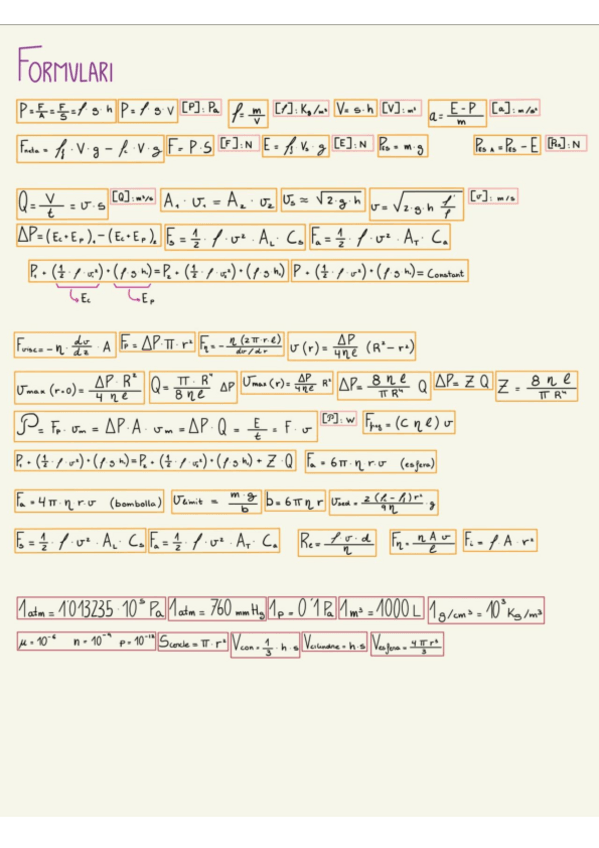 FORMULARI
P = F/A = F/S = ρ · g · h P = ρ · g · V [P]: Pa ρ = m/V [ρ]: Kg/m³ V = s · h [V]: m³ a = E - P / m [a]: m/s²
F = P · S [F]: N E = ρ · V · g [E]: N Pes = m · g Pes A = Pes - E : N
Q = V/t = v · s [Q]: m³/s A₁ · v₁ = A₂ · v₂ ≈ √2 · g · h [v]: m/s
ΔP = (Ec + Ep) - (Ec + Ep) Fs = 1/2 · ρ · v² · AL · Cs Fa = 1/2 · ρ · v² · AT · Ca
P₁ + (1/2 · ρ · v₁²) + (ρ g h) = P₂ + (1/2 · ρ · v₂²) + (ρ g h) P + (1/2 · ρ · v²) + (ρ g h) = Constant
Ec Ep
Fvisc = - η · dv/dz · A Fp = ΔP · π · r² v (r) = ΔP/4ηl (R² - r²)
vmax (r=0) = ΔP · R² / 4 η l Q = π · R⁴ / 8 η l ΔP vmax (r) = ΔP/4ηl R² ΔP = 8 η l / π R⁴ Q ΔP = Z Q Z = 8 η l / π R⁴
P = Fp · vm = ΔP · A · vm = ΔP · Q = E/t = F · v [P]: W = (C η l) v
P₁ + (1/2 · ρ · v₁²) + (ρ g h) = P₂ + (1/2 · ρ · v₂²) + (ρ g h) + Z · Q Fa = 6π · η r · v (esfera)
Fa = 4π · η r · v (bombolla) vlimit = m · g / b b = 6π η r
Fs = 1/2 · ρ · v² · AL · Cs Fa = 1/2 · ρ · v² · AT · Ca Re = ρ · v · d / η Fη = η A v / l Fi = ρ · A · v²
1 atm = 1'013235 · 10⁵ Pa 1 atm = 760 mmHg 1p = 0'1 Pa 1m³ = 1000 L 1g/cm³ = 10³ Kg/m³
μ = 10⁻⁶ n = 10⁻⁹ p = 10⁻¹² Scercle = π · r² Vcon = 1/3 · h · s Vcilindre = h · s Vesfera = 4πr³/3